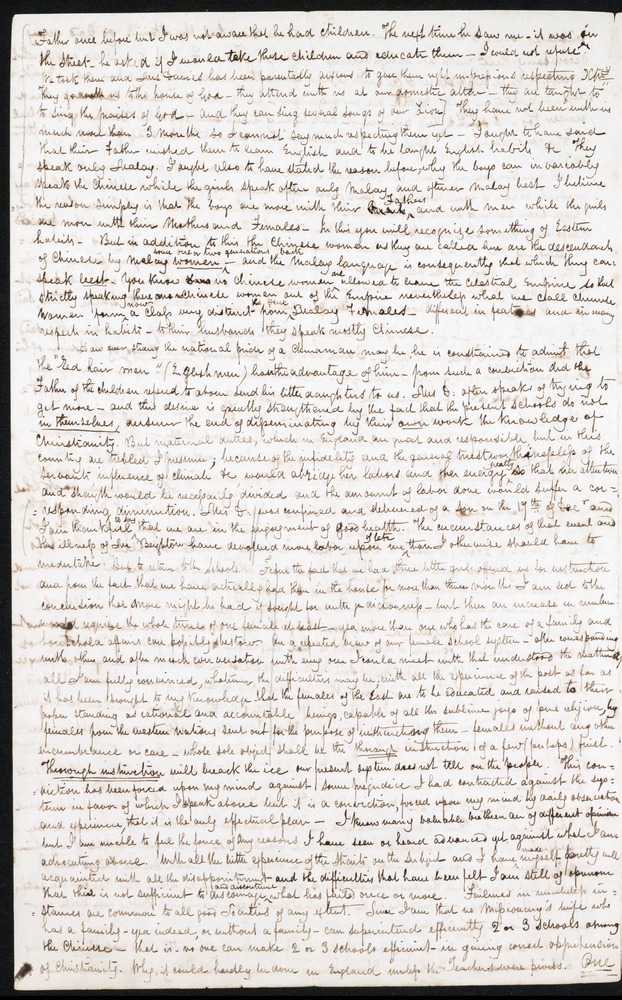 Father once before but I was not aware that he had children. The next time he saw me - it was in
the street - he ask'd if I would take these children and educate them - I could not refuse.
We took them and Mrs has been parentally anxious to give them right impressions respecting
They go with us to the house of God - they attend with us at our domestic altar - they are taught to
to sing the praises of God - and they can sing several songs of our Zion] They have not been with us
much more than 3 months so I cannot say much respecting them yet - I ought to have said
that their Father wished them to learn English and to be taught English habits &c They
speak only Malay. I ought also to have stated the reason before, why the boys can invariably
speak the Chinese while the girls speak often only Malay and oftener Malay best I believe
the reason simply is that the boys are more with their Fathers and with men while the girls
are more with their Mothers and Females - In this you will recognise something of Eastern
habits - But in addition to this the Chinese women as they are called here are the descendants
of Chinese by Malay women some one or two generations back - and the Malay language is consequently that which they can
speak best. You know no Chinese women are allowed to leave the Celestial Empire so that
strictly speaking there are no Chinese women out of the Empire nevertheless what we call Chinese
women form a class very distinct from the Malay Females - different in features and in many
respects in habits - to their husbands they speak mostly Chinese.
However strong the national pride of a Chinaman may be he is constrained to admit that
the "Red hair men" (Englishmen) has the advantage of him - from such a conviction did the
Father of the children refer'd to above send his little daughters to us. Mrs D. often speaks of trying to
get more - and this desire is greatly strengthened by the fact that the present schools do not
in themselves, answer the end of disseminating by their own work the knowledge of
Christianity. But maternal duties, which in England are great and responsible, but in this
country are trebled I presume, because of the infidelity and the general trustworthinessless of the
servants influence of climate &c would abridge her labors and her energy greatly so that her attention
and strength would be necessarily divided and the amount of labor done would suffer a cor=
=responding diminution. Mrs D. was confined and delivered of a Son on the 17th of Decr and
I am thankful to say that we are in the enjoyment of good health. The circumstances of that event and
the illness of Mr Beighton have devolved more labor upon me of late than I otherwise should have to
undertake. But to return to the schools From the fact that we had three little girls offered us for instruction
and from the fact that we have actually had them in the house for more than three months I am led to the
conclusion that more might be had if sought for with judiciousness - but then an increase in number
would require the whole time of one female at least - yea more than one who has the care of a family and
household affairs can possibly bestow. On a repeated view of our female school system - after corresponding
with others and after much conversation with every one I could meet with that understood the matter
all I am fully convinced, whatever the difficulties may be, with all the experience of the past as far as
it has been brought to my knowledge that the females of the East are to be educated and raised to their
proper standing as rational and accountable beings, capable of all the sublime joys of pure religion, by
females from the western nations sent out for the purpose of instructing them - females without any other
encumbrance or care - whose sole object shall be the thorough instruction of a few (perhaps) first.
Thorough instruction will break the ice our present system does not tell on the people. This con=
=viction has been forced upon my mind against some prejudice I had contracted against the sys=
=tem in favor of which I speak above but it is a conviction, forced upon my mind by daily observation
and experience, that it is the only effectual plan - I know many valuable brethren are of different opinion
but I am unable to feel the force of any reasons I have seen or heard advanced yet against what I am
advocating above. With all the little experience of the Straits on the Subject and I have made myself pretty well
acquainted with all the disappointment and the difficulties that have been felt I am still of opinion
that this is not sufficient to discourage and discontinue what has failed once or more. Failures in numberless in=
=stances are common to all good Societies of any extent. Sure I am that no Missionary's wife who
has a family - yea indeed, or without a family - can superintend efficiently 2 or 3 schools among
the Chinese - that is - no one can make 2 or 3 schools efficient in giving correct apprehensions
of Christianity. Why, it could hardly be done in England unless the Teachers were pious. One